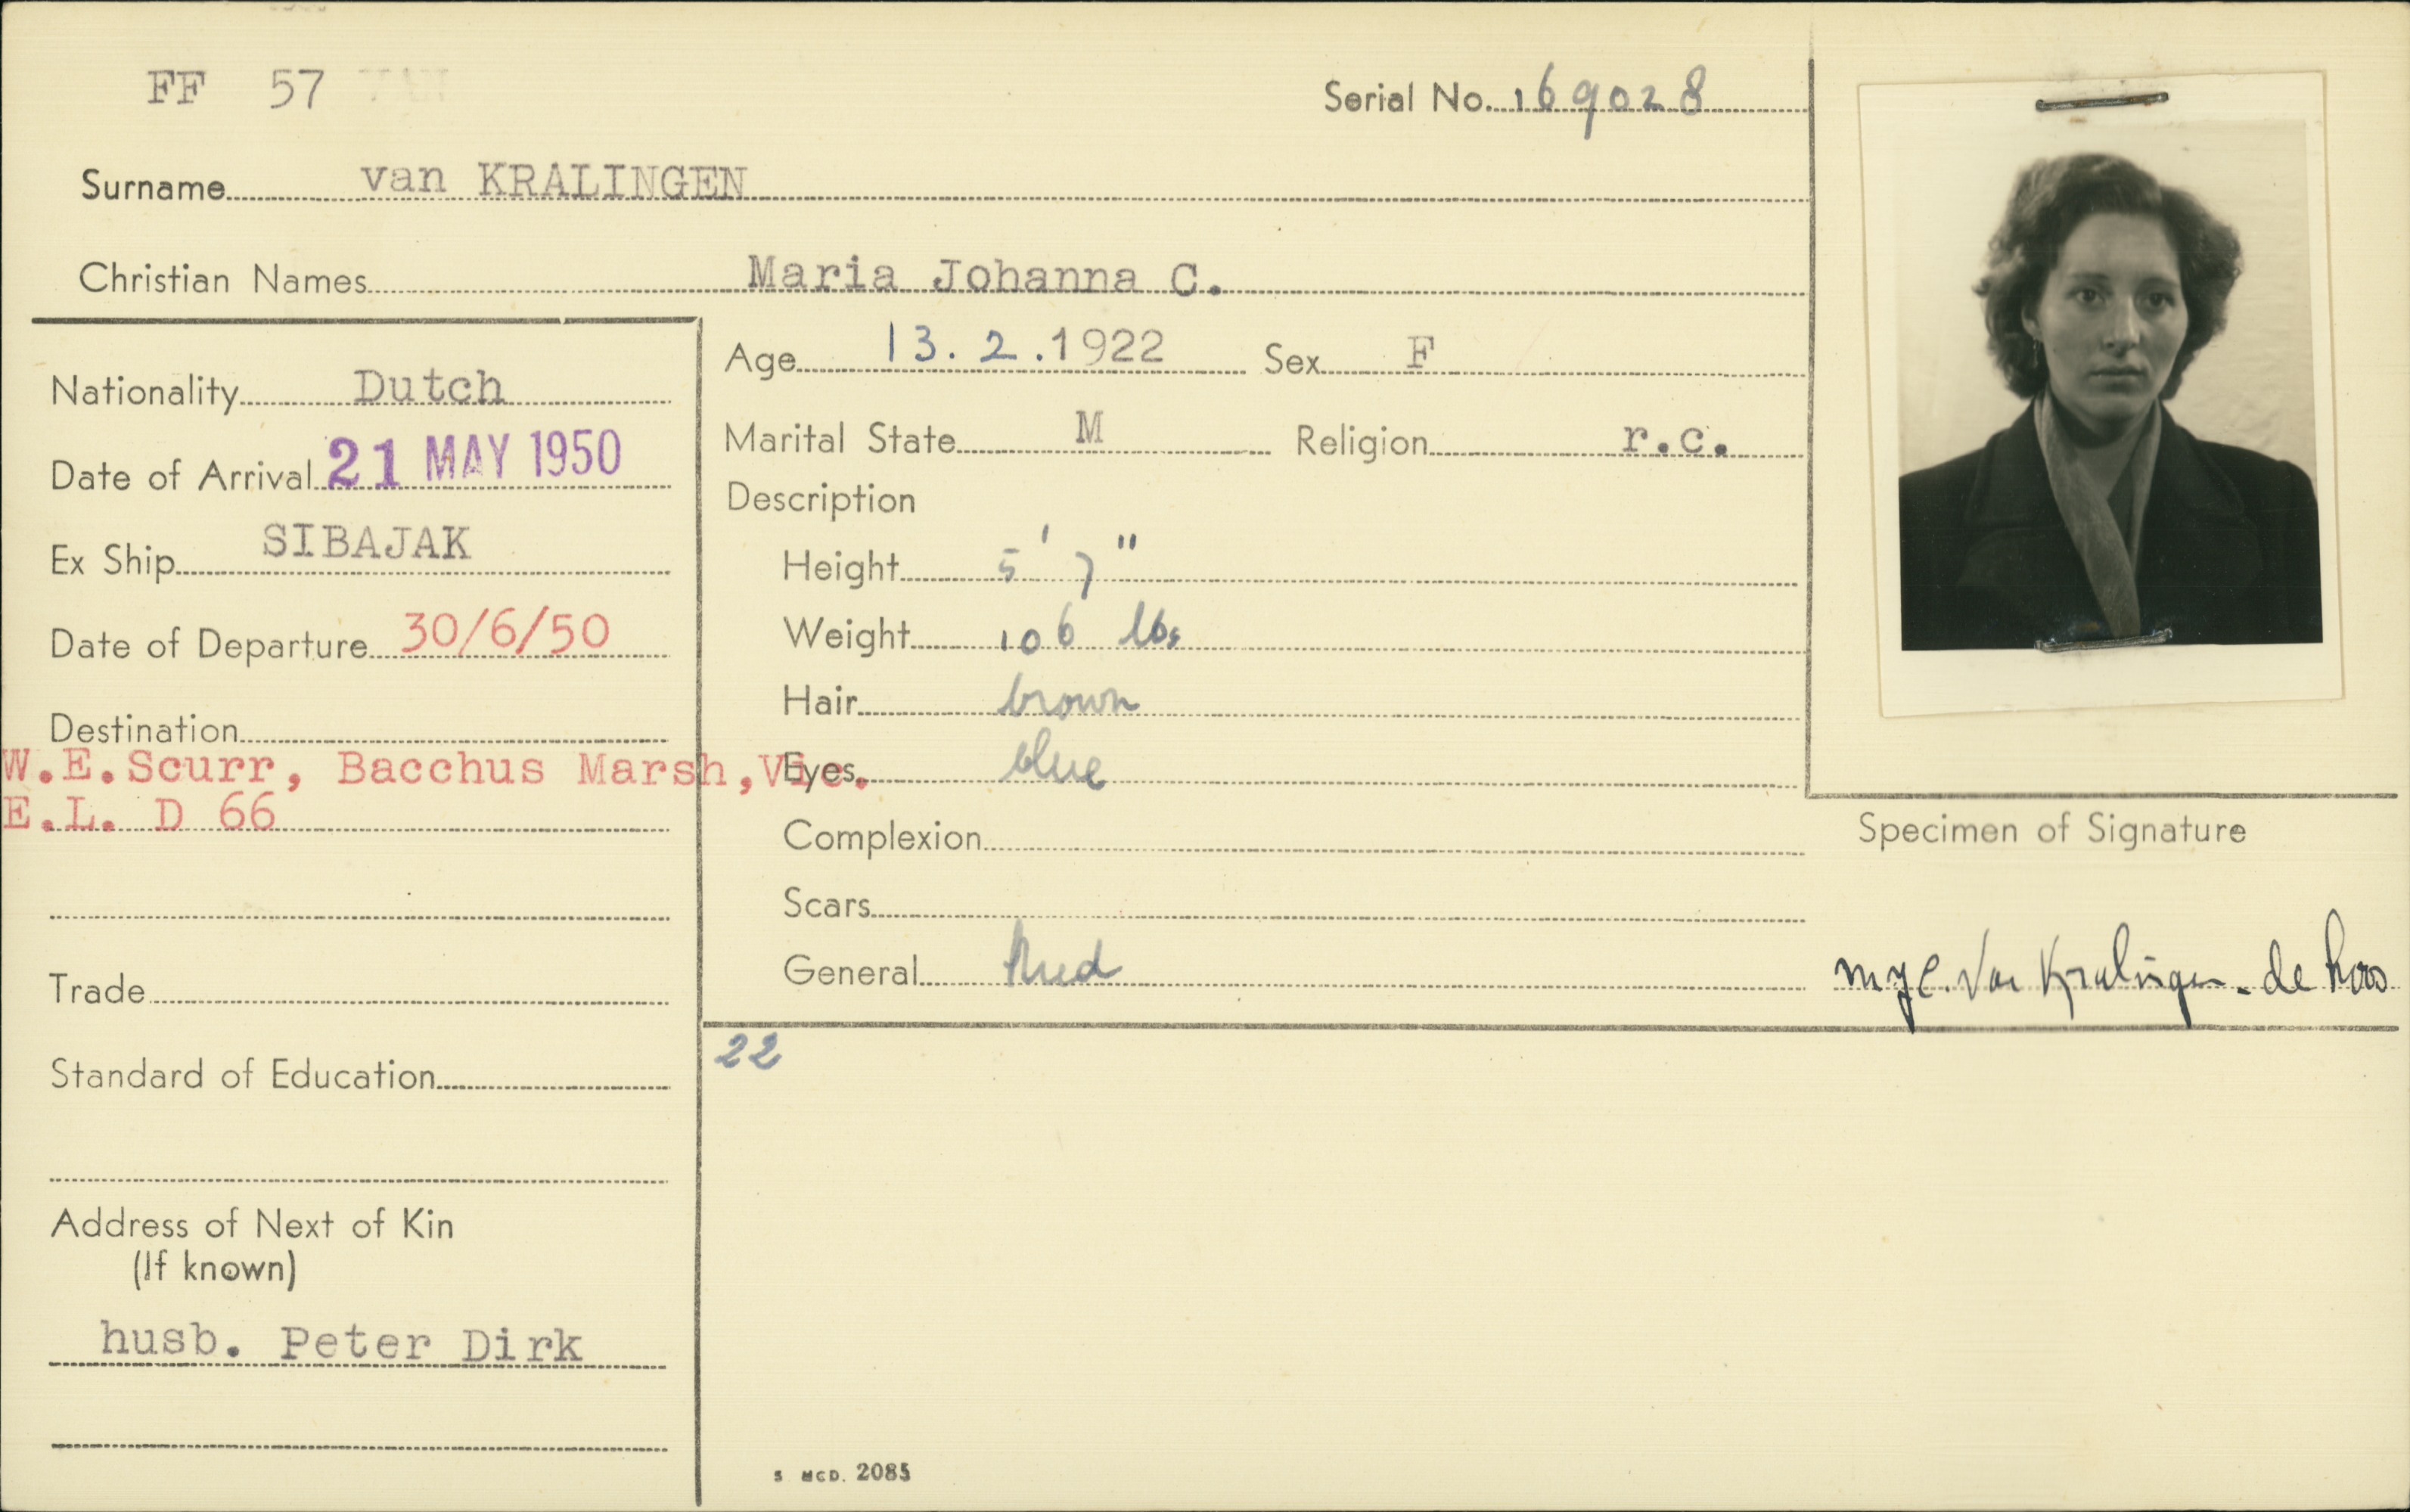 FF 57
Serial No. 169028
Surname van KRALINGEN
Christian Names Maria Johanna C.
Nationality Dutch
Date of Arrival 21 MAY 1950
Ex Ship SIBAJAK
Date of Departure 30/6/50
Destination
W.E.Scurr, Bacchus Marsh, Vic.
E.L. D 66
Trade
Standard of Education
Address of Next of Kin
(If known)
husb. Peter Dirk
Age 13.2.1922 Sex F
Marital State M Religion r.c.
Description
Height 5' 7"
Weight 106 lbs
Hair brown
Eyes blue
Complexion
Scars
General Med
22
Specimen of Signature
M.J.C. Van Kralingen - de
2085